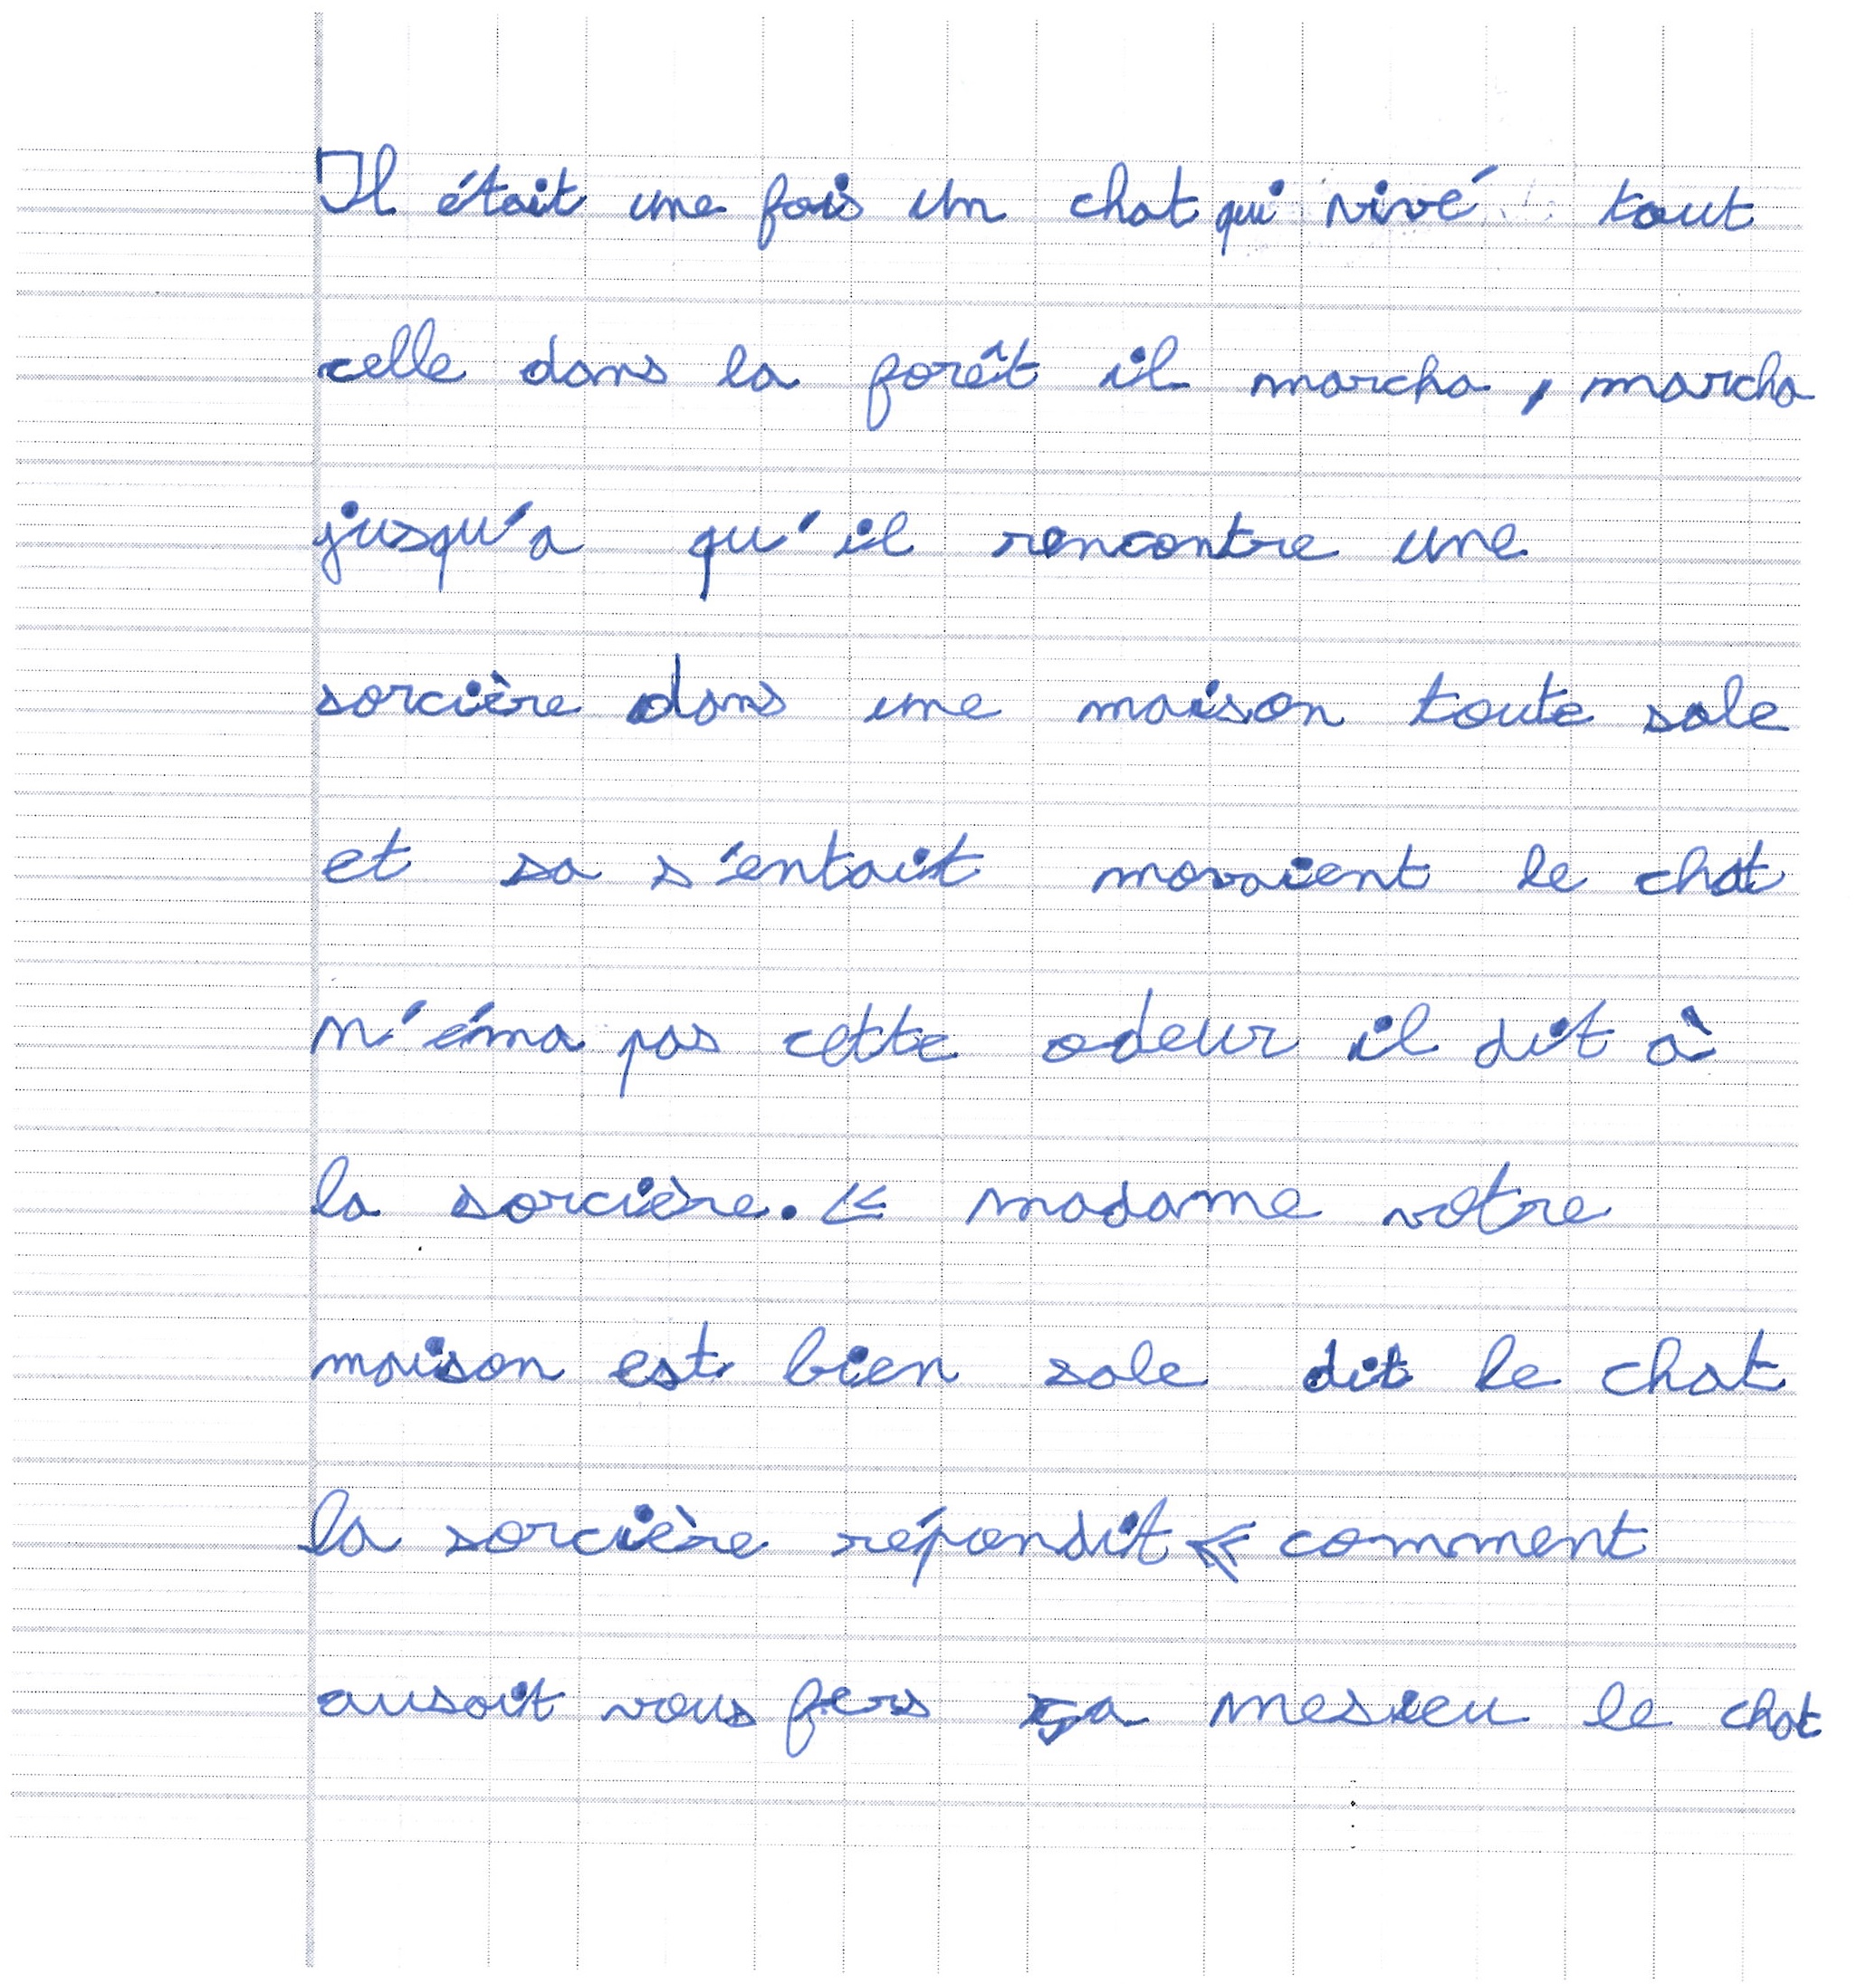 Il était une fois un chat qui vivé tout
celle dans la forêt il marcha, marcha
jusqu'a qu'il rencontre une
sorcière dans une maison toute sale
et sa s'entait movaient le chat
n'éma pas cette odeur il dit à
la sorcière. « madame votre
maison est bien sale dit le chat
la sorcière répondit « comment
ausoit vous fers ça mesieu le chat